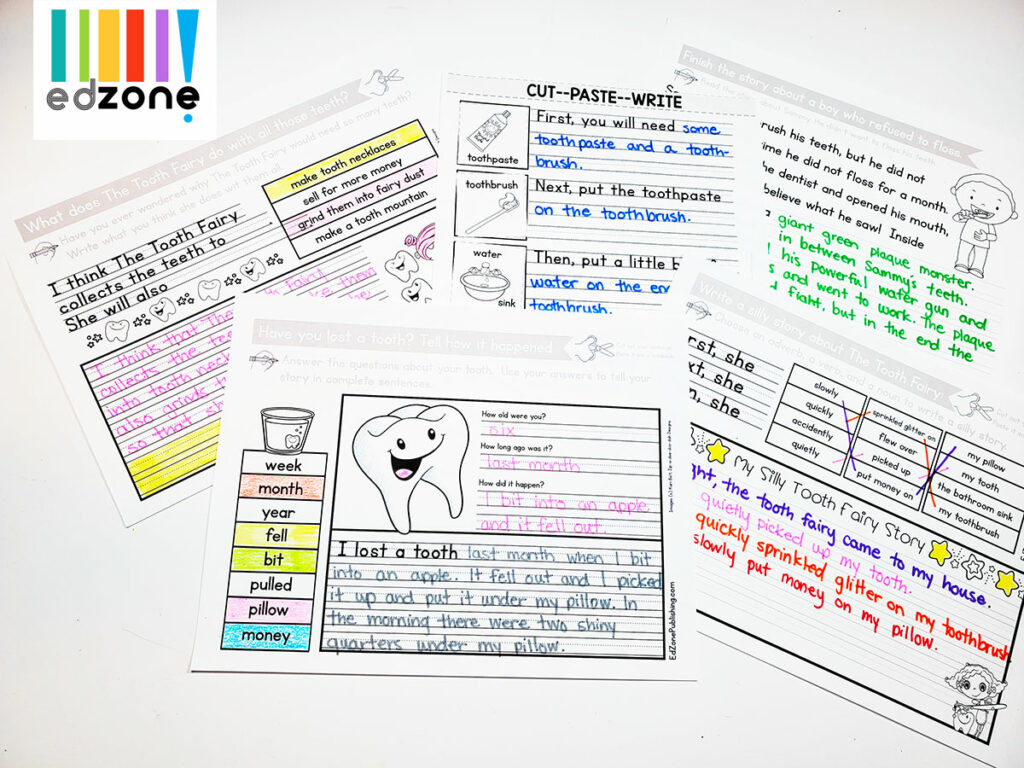 edzone
What does The Tooth Fairy do with all those teeth?
Have you ever wondered why The Tooth Fairy would need so many teeth?
Write what you think she does wit them.
make tooth necklaces
sell for more money
grind them into fairy dust
make a tooth mountain
I think The Tooth Fairy
collects the teeth to
She will also
I think that The
collects the
into tooth neck
also grinds
so that
CUT--PASTE--WRITE
toothpaste
First, you will need some
toothpaste and a tooth-
brush.
toothbrush
Next, put the toothpaste
on the toothbrush.
water
sink
Then, put a little b
water on the en
toothbrush.
Finish the story about a boy who refused to floss.
rush his teeth, but he did not
ime he did not floss for a month.
he dentist and opened his mouth,
believe what he saw! Inside
giant green plaque monster.
in between Sammy's teeth.
his powerful water gun and
s and went to work. The plaque
d fight, but in the end the
Have you lost a tooth? Tell how it happened
Answer the questions about your tooth. Use your answers to tell your
story in complete sentences.
week
month
year
fell
bit
pulled
pillow
money
How old were you?
six
How long ago was it?
last month
How did it happen?
I bit into an apple
and it fell out.
I lost a tooth last month when I bit
into an apple. It fell out and I picked
it up and put it under my pillow. In
the morning there were two shiny
quarters under my pillow.
EdZonePublishing.com
Write a silly story about The Tooth Fairy
Choose an adverb, verb, and a noun to write a silly story.
irst, she
ext, she
n, she
slowly
quickly
accidently
quietly
sprinkled glitter on
flew over
picked up
put money on
my pillow
my tooth
the bathroom sink
my toothbrush
My Silly Tooth Fairy Story
ght, the tooth fairy came to my house.
quietly picked up my tooth.
quickly sprinkled glitter on my toothbrush
slowly put money on my pillow.